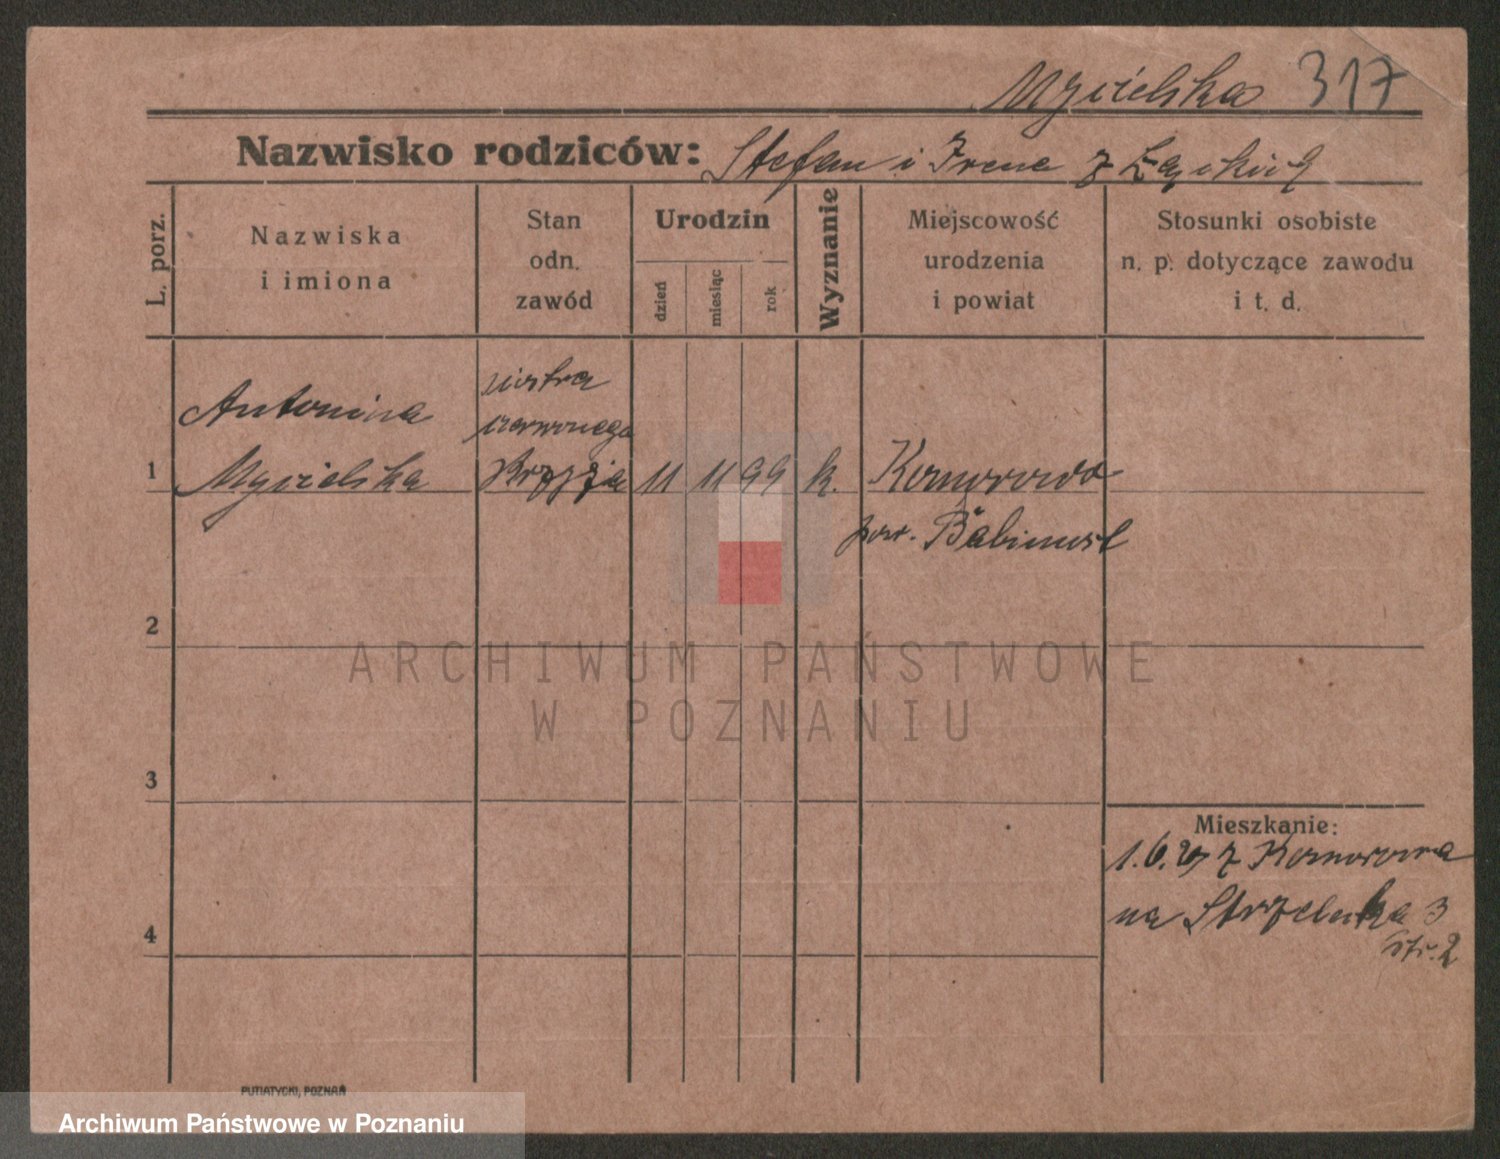 Mycielska 317
Nazwisko rodziców: Stefan i Irena z Łąckich
L. porz.
Nazwiska
i imiona
Stan
odn.
zawód
Urodzin
dzień
miesiąc
rok
Wyznanie
Miejscowość
urodzenia
i powiat
Stosunki osobiste
n. p. dotyczące zawodu
i t. d.
1
Antonina
Mycielska
siostra
czerwonego
Krzyża
11 11 99 k.
Komorowo
pow. Babimost
2
3
4
Mieszkanie:
1.6. z Komorowa
na Strzelecka 3
str. 2
PUTIATYCKI, POZNAŃ
ARCHIWUM PAŃSTWOWE
W POZNANIU
Archiwum Państwowe w Poznaniu